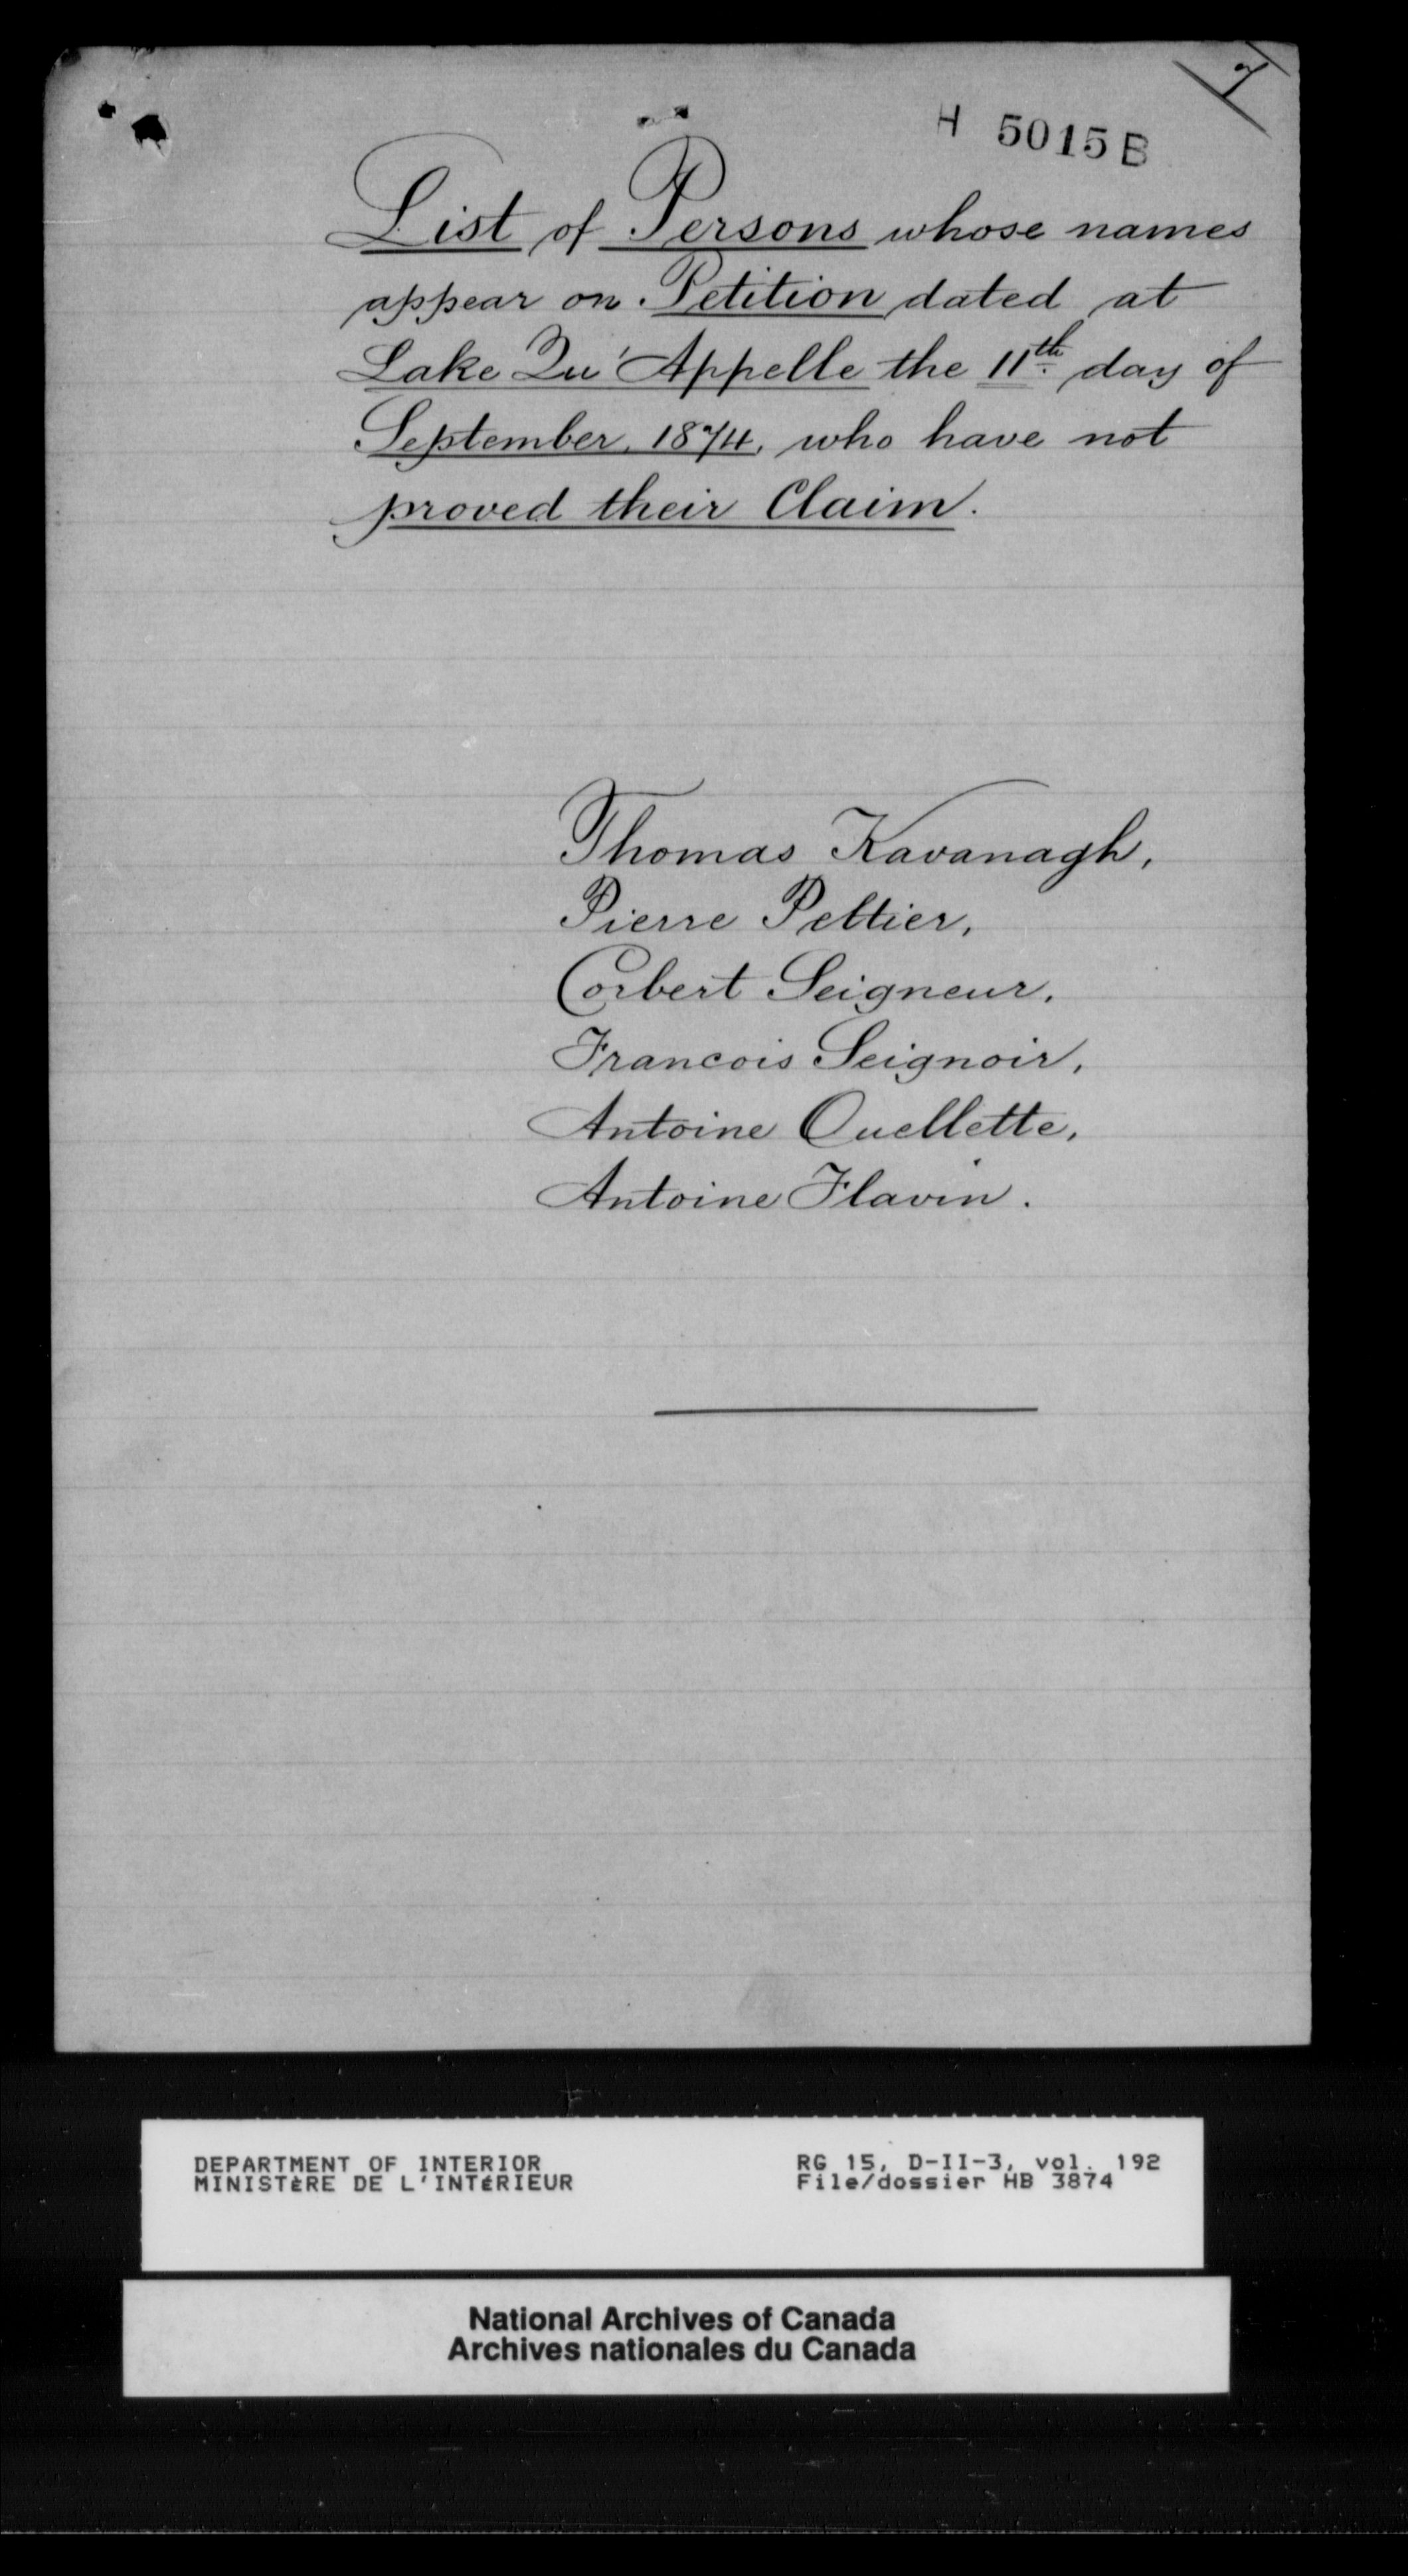 7
H 5015 B
List of Persons whose names
appear on Petition dated at
Lake Qu'Appelle the 11th. day of
September, 1874, who have not
proved their Claim.
Thomas Kavanagh,
Pierre Peltier,
Corbert Seigneur,
Francois Seignoir,
Antoine Ouellette,
Antoine Flavin.
DEPARTMENT OF INTERIOR
MINISTÈRE DE L'INTÉRIEUR
RG 15, D-II-3, vol. 192
File/dossier HB 3874
National Archives of Canada
Archives nationales du Canada